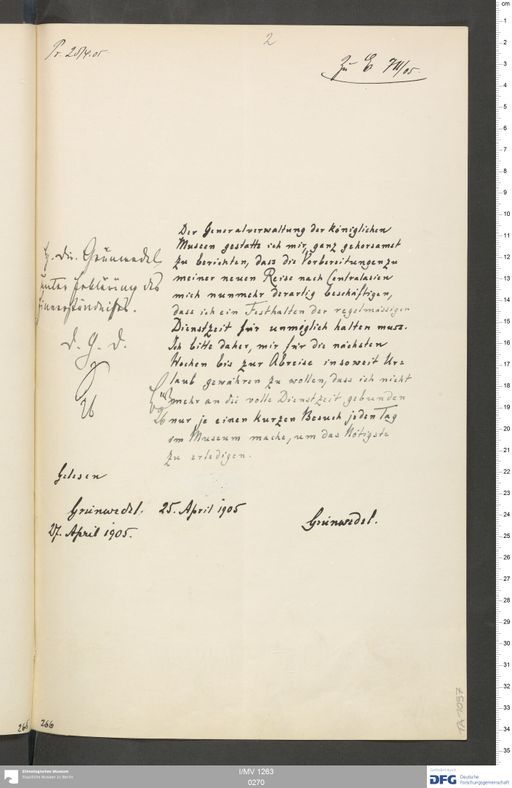 2
Pr. 25/4.05
Zu E 711/05
Der Generalverwaltung der königlichen
Museen gestatte ich mir, ganz gehorsamst
zu berichten, dass die Vorbereitungen zu
meiner neuen Reise nach Centralasien
mich nunmehr derartig beschäftigen,
dass ich ein Festhalten der regelmässigen
Dienstzeit für unmöglich halten muss.
Ich bitte daher, mir für die nächsten
Wochen bis zur Abreise insoweit Ur=
laub gewähren zu wollen, dass ich nicht
mehr an die volle Dienstzeit gebunden
nur je einen kurzen Besuch jeden Tag
im Museum mache, um das Nötigste
zu erledigen.
H. Dir. Grünwedel
unter Erklärung des
Einverständnisses.
D. G. V.
Gelesen
Grünwedel. 25. April 1905
Grünwedel.
27. April 1905.
265
266
TA 1097
Ethnologisches Museum
Staatliche Museen zu Berlin
I/MV 1263
0270
DFG Deutsche
Forschungsgemeinschaft